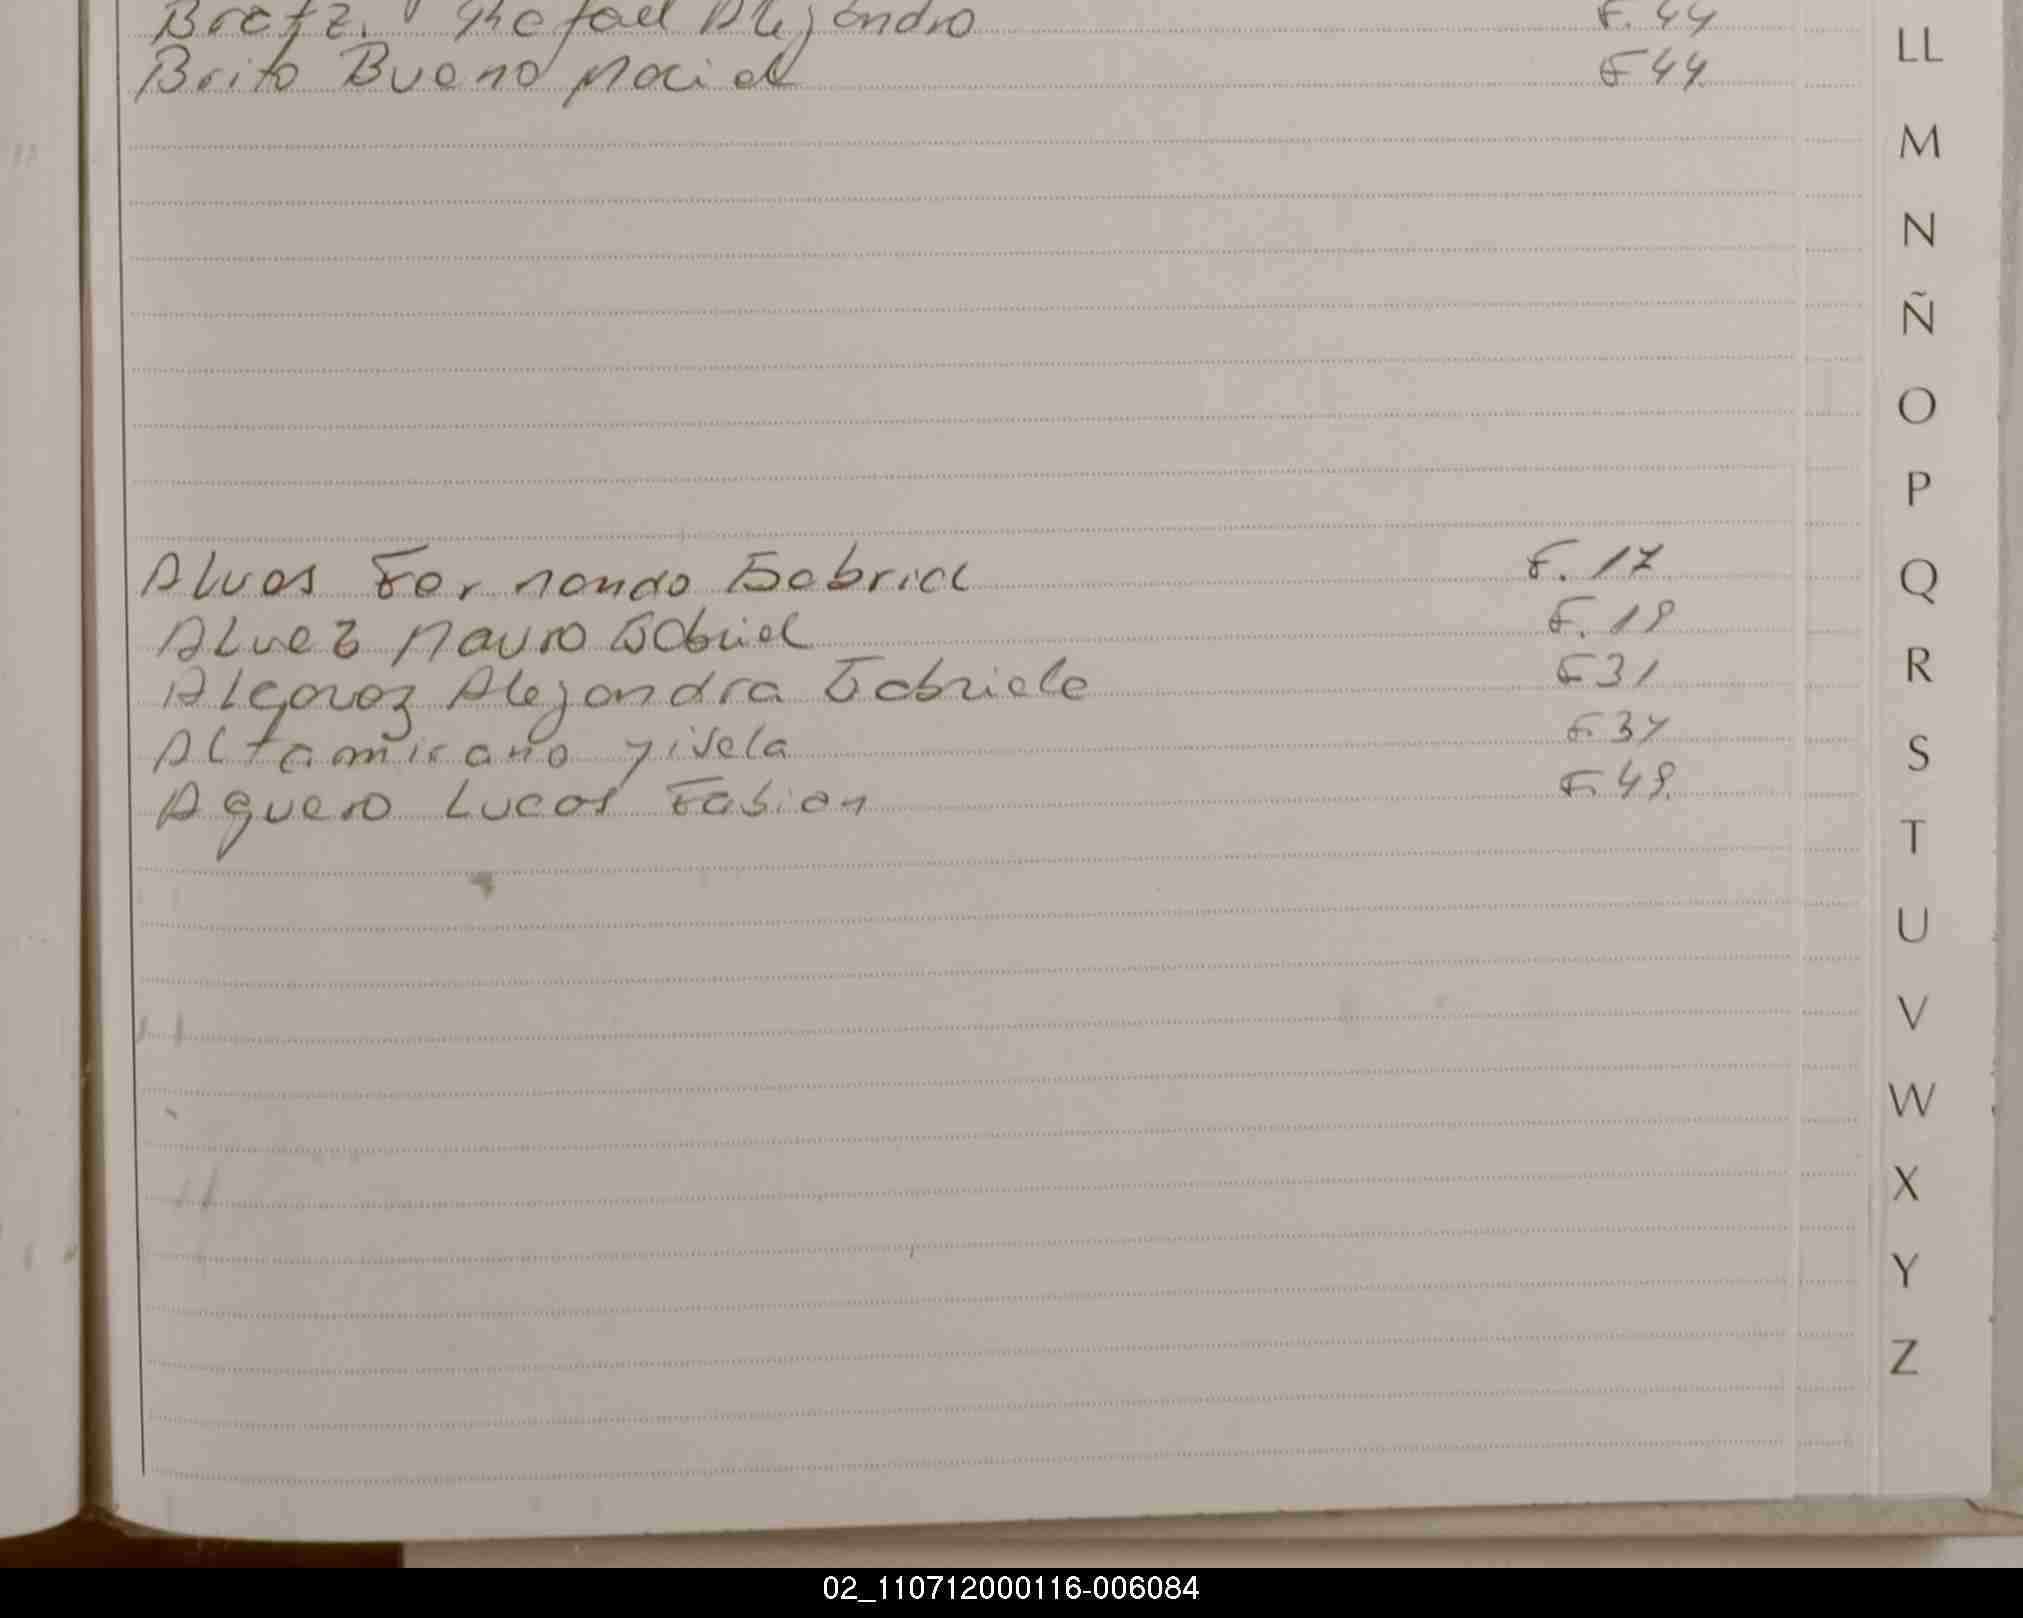 Bretz. Rafael Alejandro F. 44
Brito Bueno Maciel F 44
Alves Fernando Gabriel F. 17
Alvez Mauro Gabriel F. 19
Alcaraz Alejandra Gabriela F 31
Altamirano Yisela F. 34
Aguero Lucas Fabian F. 49.
LL
M
N
Ñ
O
P
Q
R
S
T
U
V
W
X
Y
Z
02_110712000116-006084